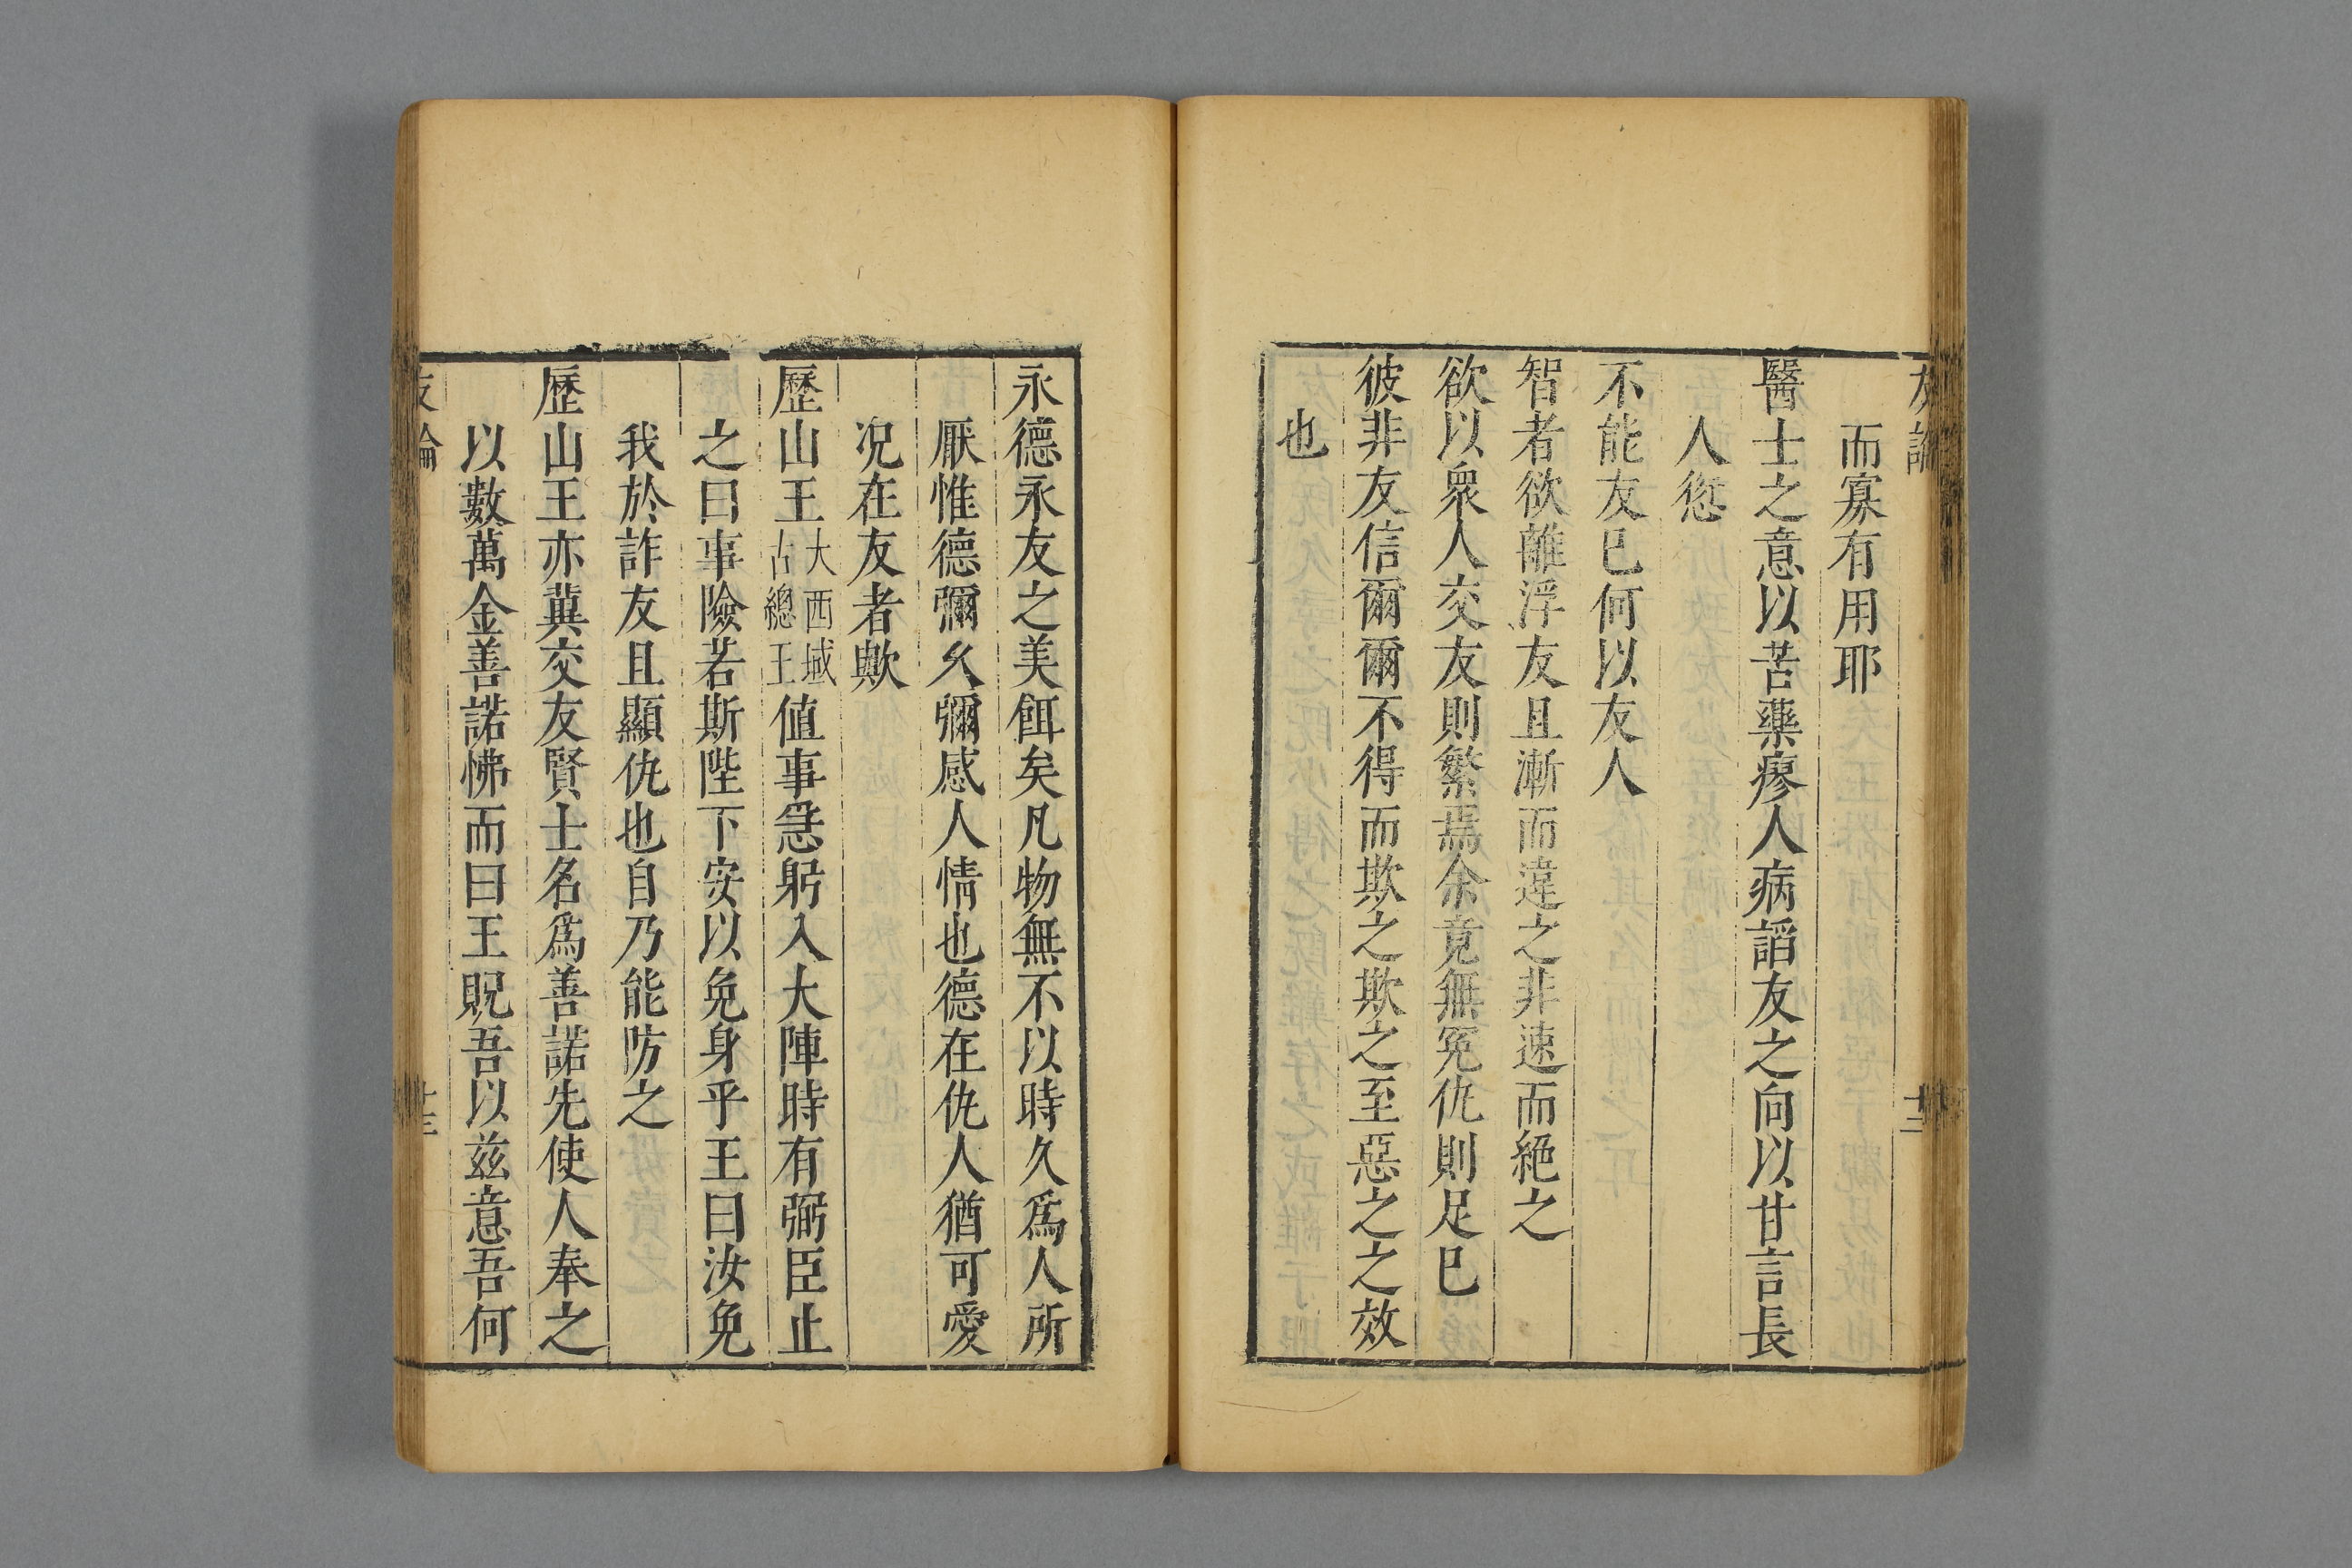 而寡有用耶
醫士之意以苦藥瘳人病諂友之向以甘言長
人愆
不能友已何以友人
智者欲離浮友且漸而違之非速而絶之
欲以衆人交友則繁焉余竟無冤仇則足巳
彼非友信爾爾不得而欺之欺之至惡之之效
也
永德永友之美餌矣凡物無不以時久爲人所
厭惟德彌久彌感人情也德在仇人猶可愛
况在友者歟
歷山王大西域古總王值事急躬入大陣時有弼臣止
之曰事險若斯陛下安以免身乎王曰汝免
我於詐友且顯仇也自乃能防之
歷山王亦冀交友賢士名爲善諾先使人奉之
以數萬金善諾怫而曰王貺吾以兹意吾何
友論
十三